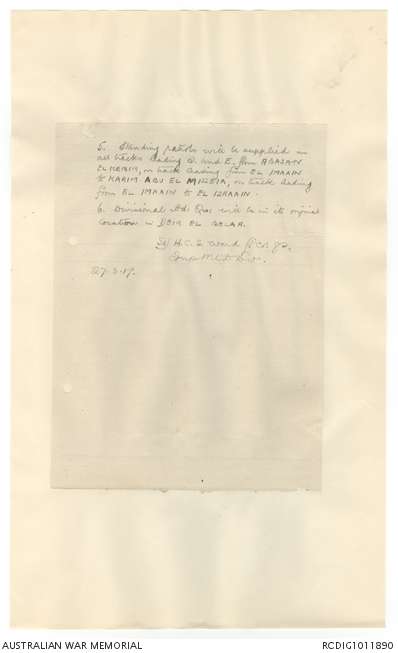 5. Standing patrols will be supplied on
all tracks leading S. and E. from ABASAN
EL KEBIR, on track leading from EL IMAAIN
to KARIM ABU EL MIZEIA, on track leading
from EL IMAAIN to EL IZRAAIN.
6. Divisional Hd Qrs will be in its original
location in DEIR EL BELAR.
H.C.
27.3.17.
AUSTRALIAN WAR MEMORIAL
RCDIG1011890